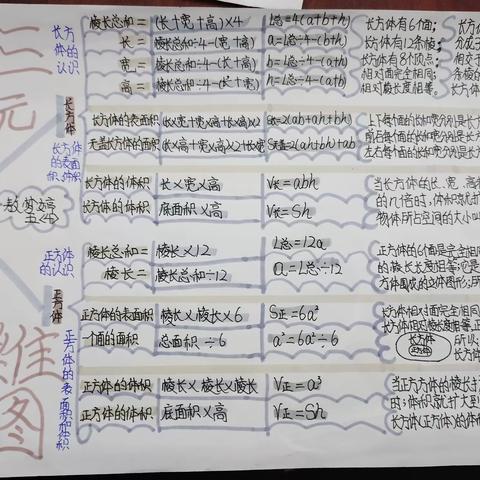 三元
维图
长方体的认识
棱长总和= (长+宽+高)×4 L总=4(a+b+h)
长= 棱长总和÷4-(宽+高) a=L总÷4-(b+h)
宽= 棱长总和÷4-(长+高) b=L总÷4-(a+h)
高= 棱长总和÷4-(长+宽) h=L总÷4-(a+b)
长方体有6个面;
长方体有12条棱;
长方体有8个顶点;
相对面完全相同;
相对棱长度相等。
长方体
长方体的表面积、体积
长方体的表面积 (长×宽+宽×高+长×高)×2 S长=2(ab+ah+bh)
无盖长方体的面积 (长×高+宽×高)×2+长×宽 S无盖=2(ah+bh)+ab
上下每个面的长和宽分别是长方
前后每个面的长和宽分别是长
左右每个面的长和宽分别是长方
长方体的体积 长×宽×高 V长=abh
长方体的体积 底面积×高 V长=Sh
当长方体的长、宽、高
的几倍时,体积就扩
物体所占空间的大小叫
正方体的认识
棱长总和= 棱长×12 L总=12a
棱长= 棱长总和÷12 a=L总÷12
正方体的6个面是完全相
的棱长长度相等;它是
方体围成的立体图形;所
正方体
正方体的表面积和体积
正方体的表面积 棱长×棱长×6 S正=6a²
一个面的面积 总面积÷6 a²=6a²÷6
长方体相对面完全相同
长方体相对棱长度相等,正
长方体
正方体
所以
长方体
正方体的体积 棱长×棱长×棱长 V正=a³
正方体的体积 底面积×高 V正=Sh
当正方体的棱长扩
时,体积就扩大到
长方体(正方体)的体积